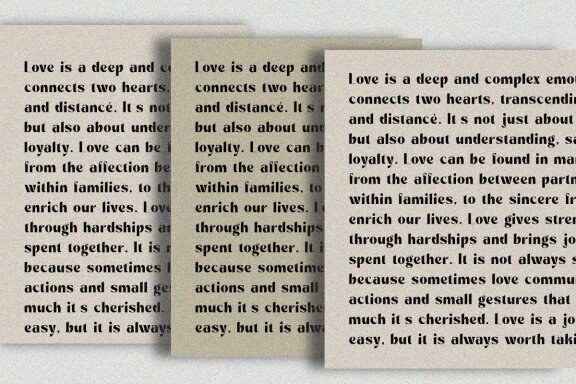 Love is a deep and co
connects two hearts,
and distance. It s not
but also about under
loyalty. Love can be
from the affection be
within families, to th
enrich our lives. Love
through hardships an
spent together. It is n
because sometimes l
actions and small ges
much it s cherished.
easy, but it is always
Love is a deep and
connects two hear
and distance. It s n
but also about un
loyalty. Love can
from the affection
within families, to
enrich our lives. L
through hardships
spent together. It i
because sometimes
actions and small
much it s cherishe
easy, but it is alwa
Love is a deep and complex emo
connects two hearts, transcendin
and distance. It s not just about
but also about understanding, sa
loyalty. Love can be found in ma
from the affection between partn
within families, to the sincere fr
enrich our lives. Love gives stren
through hardships and brings jo
spent together. It is not always s
because sometimes love commu
actions and small gestures that
much it s cherished. Love is a jo
easy, but it is always worth taki